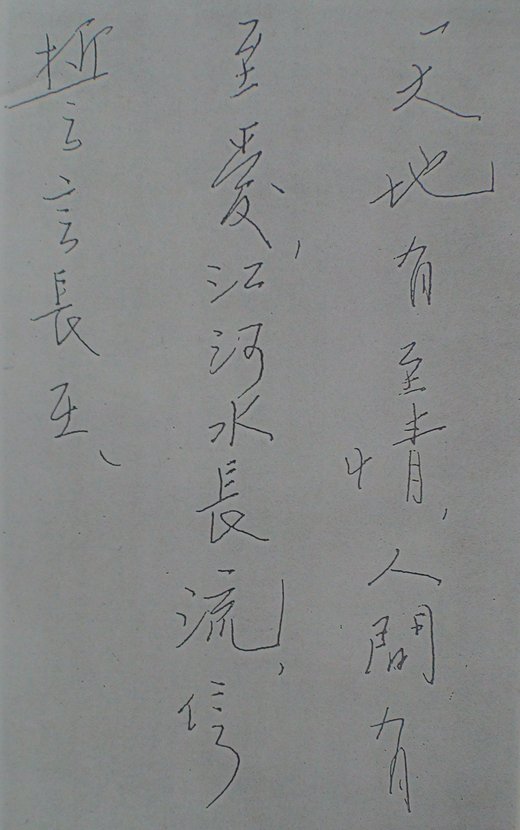 天地有至情,人間有
至愛,江河水長流,信
誓言長